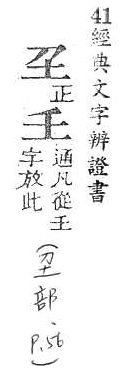 41 經典文字辨證書
正
壬
通凡從壬
字放此
(部 P.56)